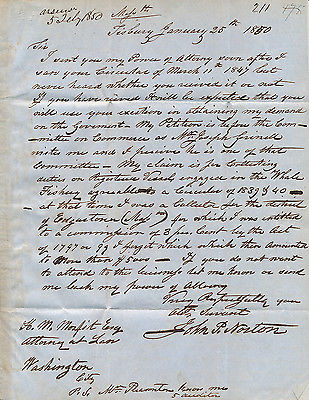 answd
5 July 1850
Mass
211
Tisbury January 25th 1850
Sir
I sent you my Power of Attorny soon after I
saw your Circular of March 11th 1847 but
never heard whether you recived it or not
If you have recived it will be expected that you
will use your exertion in attaining my demand
on the Goverment - My Petition is before the Com-
mittee on Commerce as Mr Joseph Grinnell
writes me and I presume he is one of that
Committee - My claim is for Collecting
duties on Registered Vessels engaged in the Whale
Fishery agreeable to a Circular of 1839 & 40 -
at that time I was a Collector for the district
of Edgartown (Mass) for which I was entitled
to a commission of 3 per Cent by the Act
of 1797 or 99 I forget which which then amounted
to More than $5000 - If you do not want
to attend to this buisness let me know or send
me back my power of Attorny
Very Respectfully your
Obt Servant
John P. Norton
H. M. Morfit Esq
Attorney at Law
Washington
City
P.S. Mr know me
5 auditor